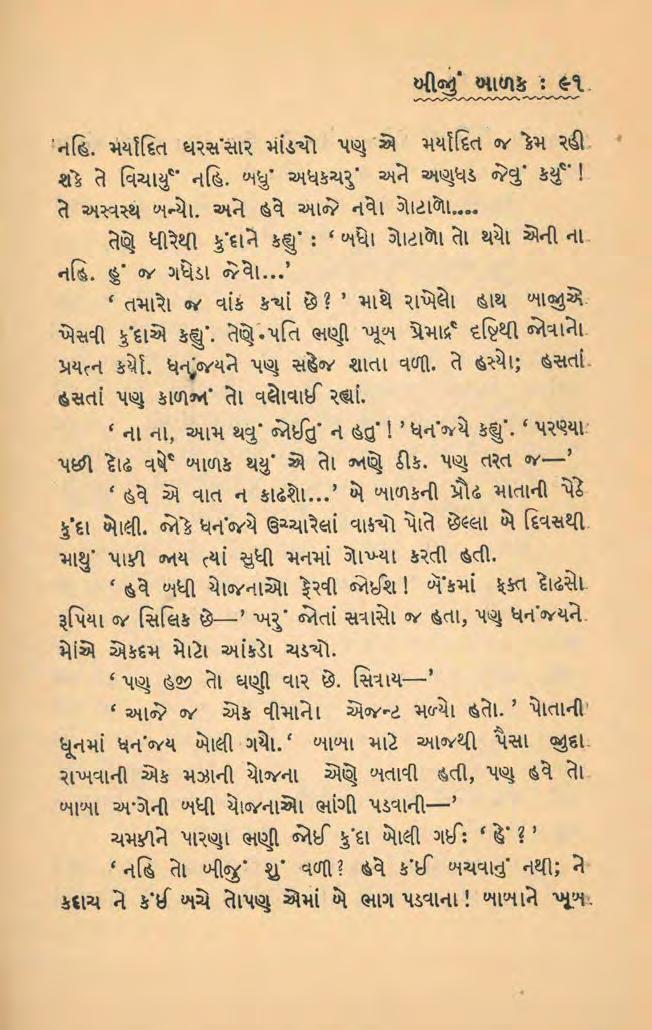 બીજું બાળક : ૯૧
નહિ. મર્યાદિત ઘરસંસાર માંડ્યો પણ એ મર્યાદિત જ કેમ રહી
શકે તે વિચાર્યું નહિ. બધું અધકચરું અને અણઘડ જેવું કર્યું !
તે અસ્વસ્થ બન્યો. અને હવે આજે નવો ગોટાળો....
તેણે ધીરેથી કુંદાને કહ્યું : ‘ બધો ગોટાળો તો થયો એની ના
નહિ. હું જ ગધેડા જેવો...’
‘ તમારો જ વાંક ક્યાં છે ? ’ માથે રાખેલો હાથ બાજુએ
ખેસવી કુંદાએ કહ્યું. તેણે પતિ ભણી ખૂબ પ્રેમાર્દ્ર દૃષ્ટિથી જોવાનો
પ્રયત્ન કર્યો. ધનંજયને પણ સહેજ શાતા વળી. તે હસ્યો; હસતાં
હસતાં પણ કાળજાં તો વલોવાઈ રહ્યાં.
‘ ના ના, આમ થવું જોઈતું ન હતું ! ’ ધનંજયે કહ્યું. ‘ પરણ્યા
પછી દોઢ વર્ષે બાળક થયું એ તો જાણે ઠીક. પણ તરત જ—’
‘ હવે એ વાત ન કાઢશો...’ બે બાળકની પ્રૌઢ માતાની પેઠે
કુંદા બોલી. જોકે ધનંજયે ઉચ્ચારેલાં વાક્યો પોતે છેલ્લા બે દિવસથી
માથું પાકી જાય ત્યાં સુધી મનમાં ગોખ્યા કરતી હતી.
‘ હવે બધી યોજનાઓ ફેરવી જોઈશ ! બેંકમાં ફક્ત દોઢસો
રૂપિયા જ સિલિક છે—’ ખરું જોતાં સવાસો જ હતા, પણ ધનંજયને
મોંએ એકદમ મોટો આંકડો ચડ્યો.
‘ પણ હજી તો ઘણી વાર છે. સિવાય—’
‘ આજે જ એક વીમાનો એજન્ટ મળ્યો હતો. ’ પોતાની
ધૂનમાં ધનંજય બોલી ગયો. ‘ બાબા માટે આજથી પૈસા જુદા
રાખવાની એક મઝાની યોજના એણે બતાવી હતી, પણ હવે તો
બાબા અંગેની બધી યોજનાઓ ભાંગી પડવાની—’
ચમકીને પારણા ભણી જોઈ કુંદા બોલી ગઈ: ‘ હેં ? ’
‘ નહિ તો બીજું શું વળી ? હવે કંઈ બચવાનું નથી; ને
કદાચ ને કંઈ બચે તોપણ એમાં બે ભાગ પડવાના ! બાબાને ખૂબ